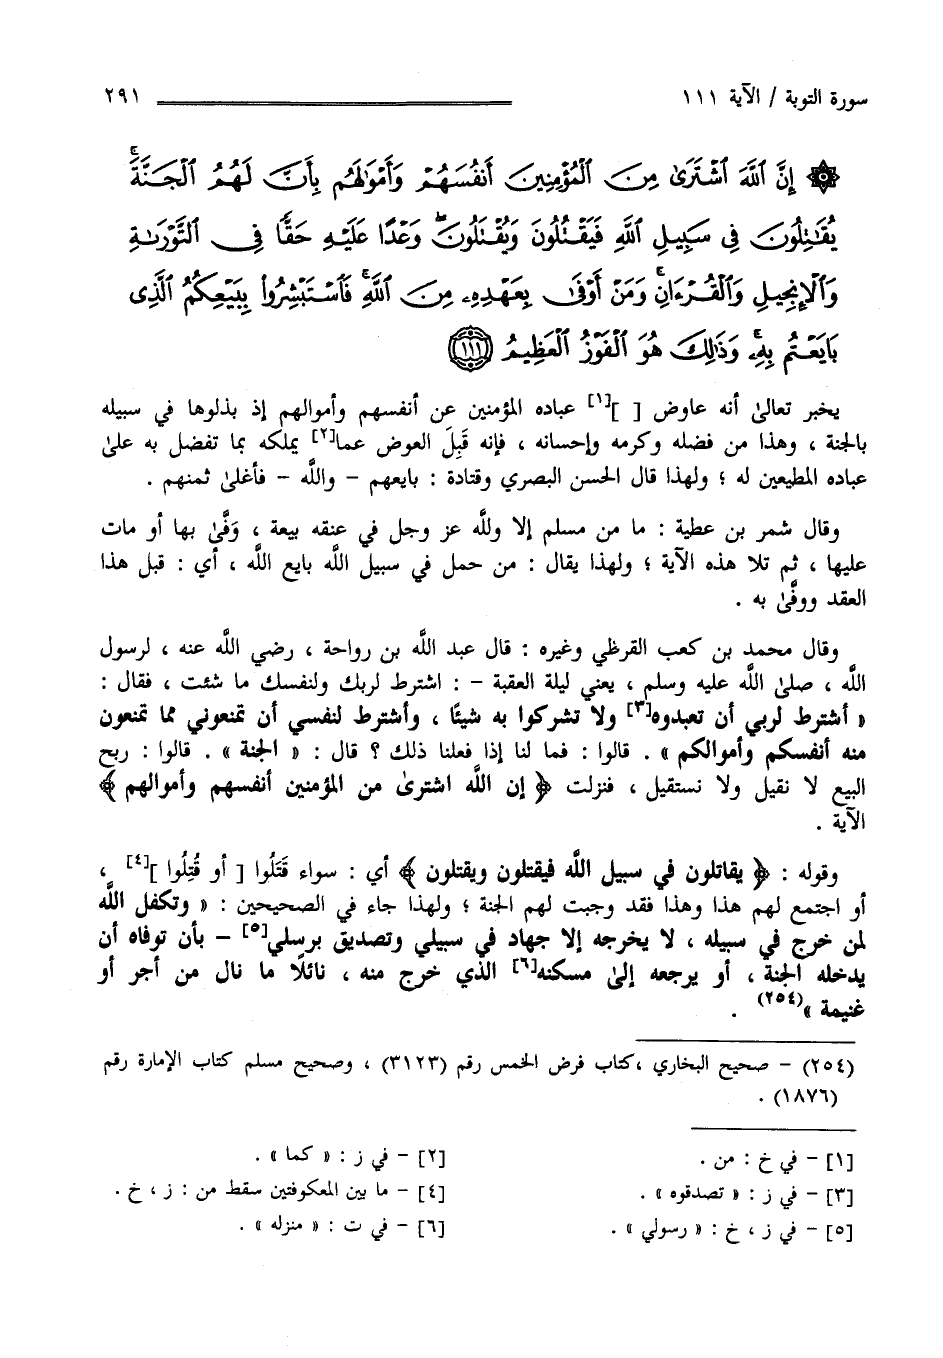 سورة التوبة / الآية ١١١ ٢٩١
۞ إِنَّ ٱللَّهَ ٱشۡتَرَىٰ مِنَ ٱلۡمُؤۡمِنِينَ أَنفُسَهُمۡ وَأَمۡوَٰلَهُم بِأَنَّ لَهُمُ ٱلۡجَنَّةَۚ
يُقَٰتِلُونَ فِي سَبِيلِ ٱللَّهِ فَيَقۡتُلُونَ وَيُقۡتَلُونَۖ وَعۡدًا عَلَيۡهِ حَقّٗا فِي ٱلتَّوۡرَىٰةِ
وَٱلۡإِنجِيلِ وَٱلۡقُرۡءَانِۚ وَمَنۡ أَوۡفَىٰ بِعَهۡدِهِۦ مِنَ ٱللَّهِۚ فَٱسۡتَبۡشِرُواْ بِبَيۡعِكُمُ ٱلَّذِي
بَايَعۡتُم بِهِۦۚ وَذَٰلِكَ هُوَ ٱلۡفَوۡزُ ٱلۡعَظِيمُ ١١١
يخبر تعالىٰ أنه عاوض [ ][١] عباده المؤمنين عن أنفسهم وأموالهم إذ بذلوها في سبيله
بالجنة ، وهذا من فضله وكرمه وإحسانه ، فإنه قَبِلَ العوض عما[٢] يملكه بما تفضل به علىٰ
عباده المطيعين له ؛ ولهذا قال الحسن البصري وقتادة : بايعهم – واللَّه – فأغلىٰ ثمنهم .
وقال شمر بن عطية : ما من مسلم إلا وللَّه عز وجل في عنقه بيعة ، وَفَّىٰ بها أو مات
عليها ، ثم تلا هذه الآية ؛ ولهذا يقال : من حمل في سبيل اللَّه بايع اللَّه ، أي : قبل هذا
العقد ووفَّىٰ به .
وقال محمد بن كعب القرظي وغيره : قال عبد اللَّه بن رواحة ، رضي اللَّه عنه ، لرسول
اللَّه ، صلىٰ اللَّه عليه وسلم ، يعني ليلة العقبة – : اشترط لربك ولنفسك ما شئت ، فقال :
« أشترط لربي أن تعبدوه[٣] ولا تشركوا به شيئًا ، وأشترط لنفسي أن تمنعوني مما تمنعون
منه أنفسكم وأموالكم » . قالوا : فما لنا إذا فعلنا ذلك ؟ قال : « الجنة » . قالوا : ربح
البيع لا نقيل ولا نستقيل ، فنزلت ﴿ إن اللَّه اشترىٰ من المؤمنين أنفسهم وأموالهم ﴾
الآية .
وقوله : ﴿ يقاتلون في سبيل اللَّه فيقتلون ويقتلون ﴾ أي : سواء قَتَلُوا [ أو قُتِلُوا ][٤] ،
أو اجتمع لهم هذا وهذا فقد وجبت لهم الجنة ؛ ولهذا جاء في الصحيحين : « وتكفل اللَّه
لمن خرج في سبيله ، لا يخرجه إلا جهاد في سبيلي وتصديق برسلي[٥] – بأن توفاه أن
يدخله الجنة ، أو يرجعه إلىٰ مسكنه[٦] الذي خرج منه ، نائلًا ما نال من أجر أو
غنيمة »(٢٥٤) .
(٢٥٤) – صحيح البخاري ،كتاب فرض الخمس رقم (٣١٢٣) ، وصحيح مسلم كتاب الإمارة رقم
(١٨٧٦) .
[١] – في خ : من . [٢] – في ز : « كما » .
[٣] – في ز : « تصدقوه » . [٤] – ما بين المعكوفتين سقط من : ز ، خ .
[٥] – في ز ، خ : « رسولي » . [٦] – في ت : « منزله » .